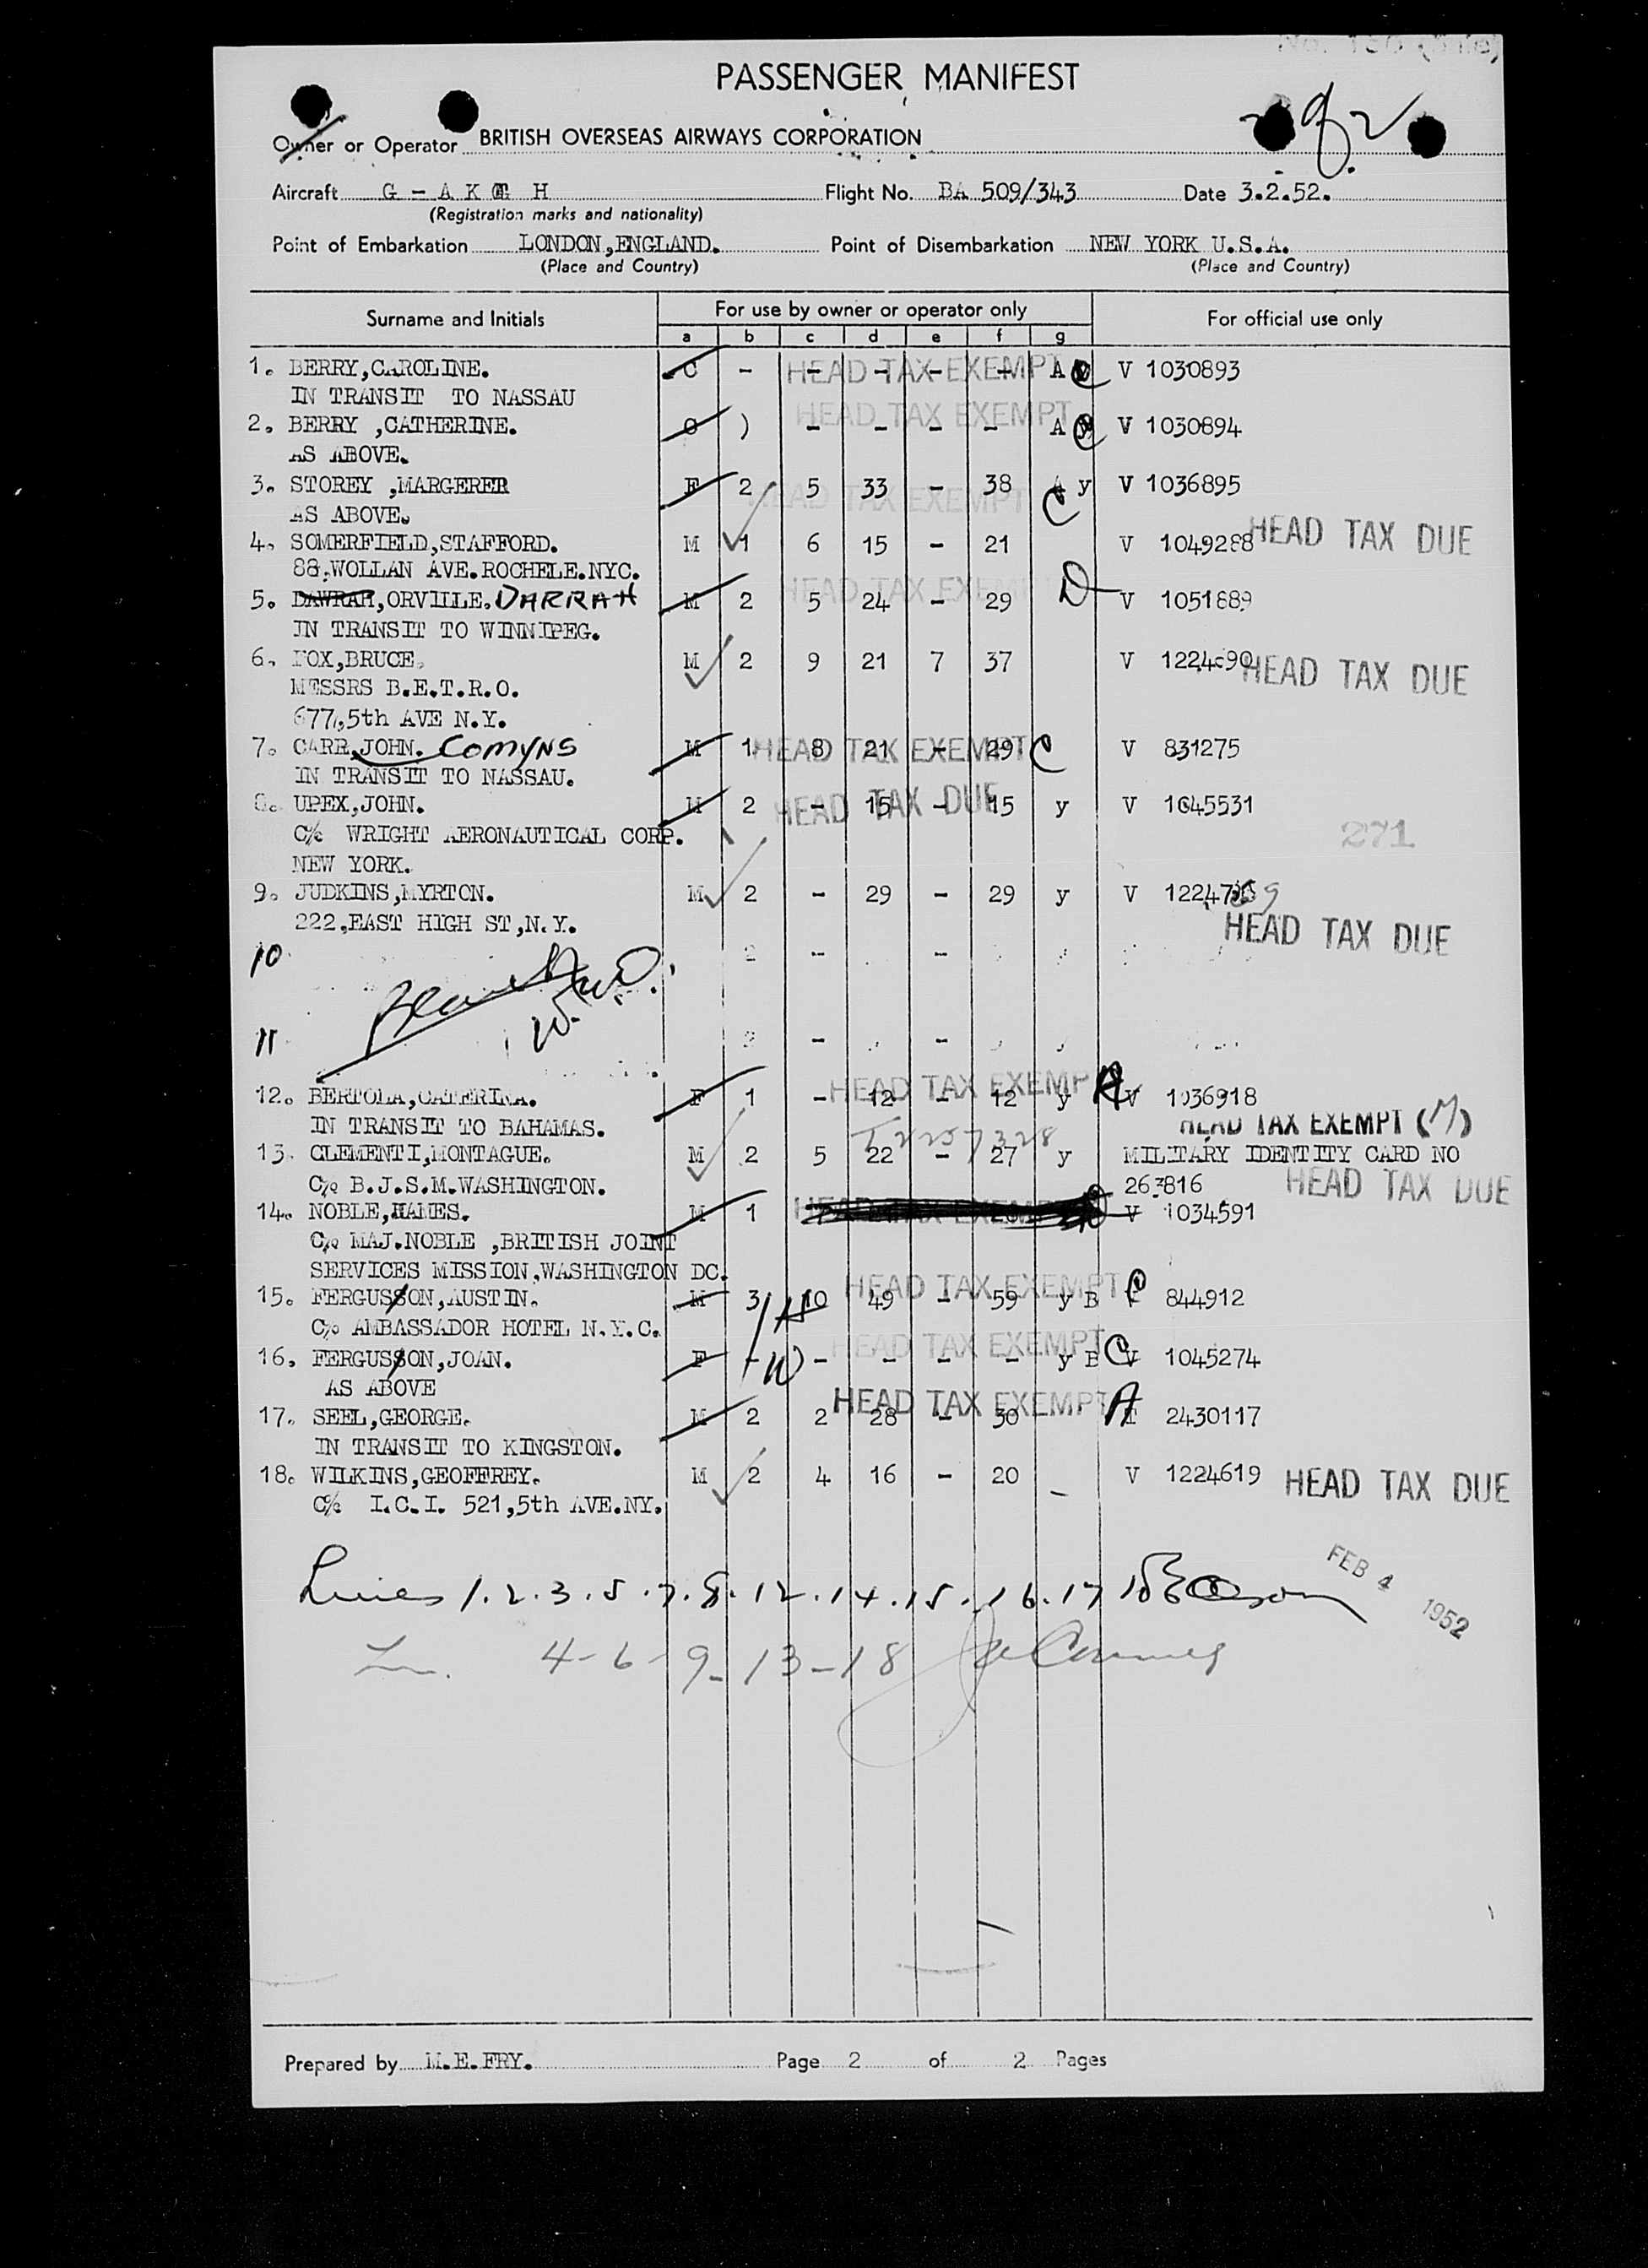 PASSENGER MANIFEST
Owner or Operator BRITISH OVERSEAS AIRWAYS CORPORATION
Aircraft G - A K G H Flight No. BA 509/343 Date 3.2.52.
(Registration marks and nationality)
Point of Embarkation LONDON,ENGLAND. Point of Disembarkation NEW YORK U.S.A.
(Place and Country) (Place and Country)
Surname and Initials For use by owner or operator only For official use only
a b c d e f g
1. BERRY,CAROLINE. C - - - - - A V 1030893 HEAD TAX EXEMPT
IN TRANSIT TO NASSAU
2. BERRY ,CATHERINE. ) - - - - A V 1030894 HEAD TAX EXEMPT
AS ABOVE.
3. STOREY ,MARGERER F 2 5 33 - 38 y V 1036895 HEAD TAX EXEMPT C
AS ABOVE.
4. SOMERFIELD,STAFFORD. M 1 6 15 - 21 V 1049288 HEAD TAX DUE
88,WOLLAN AVE.ROCHELE.NYC.
5. DAWRAH,ORVILLE. DARRAH M 2 5 24 - 29 D V 1051889 HEAD TAX EXEMPT
IN TRANSIT TO WINNIPEG.
6. FOX,BRUCE. M 2 9 21 7 37 V HEAD TAX DUE
MESSRS B.E.T.R.O.
677,5th AVE N.Y.
7. CARR,JOHN. COMYNS M 1 8 21 - 29 C V 831275 HEAD TAX EXEMPT
IN TRANSIT TO NASSAU.
8. UPEX,JOHN. M 2 - 15 - 15 y V 1045531 HEAD TAX DUE
C/o WRIGHT AERONAUTICAL CORP. 271
NEW YORK.
9. JUDKINS,MYRTON. M 2 - 29 - 29 y V
222,EAST HIGH ST,N.Y. HEAD TAX DUE
10
11
12. BERTOLA,CATERINA. F 1 - 12 - 12 y A V 1036918 HEAD TAX EXEMPT
IN TRANSIT TO BAHAMAS. HEAD TAX EXEMPT (M)
13. CLEMENTI,MONTAGUE. M 2 5 22 - 27 y MILITARY IDENTITY CARD NO
C/o B.J.S.M.WASHINGTON. 263816 HEAD TAX DUE
14. NOBLE,HAMES. M 1 V 1034591
C/o MAJ.NOBLE ,BRITISH JOINT
SERVICES MISSION,WASHINGTON DC.
15. FERGUSSON,AUSTIN. M 3 10 49 - 59 y B 844912 HEAD TAX EXEMPT
C/o AMBASSADOR HOTEL N.Y.C.
16. FERGUSSON,JOAN. F - W - - - - y B C V 1045274 HEAD TAX EXEMPT
AS ABOVE
17. SEEL,GEORGE. M 2 2 28 - 30 A T 2430117 HEAD TAX EXEMPT
IN TRANSIT TO KINGSTON.
18. WILKINS,GEOFFREY. M 2 4 16 - 20 V 1224619 HEAD TAX DUE
C/o I.C.I. 521,5th AVE.NY.
Lines 1.2.3.5.7.8.12.14.15.16.17
FEB 4 1952
4-6-9-13-18
Prepared by M.E.FRY. Page 2 of 2 Pages